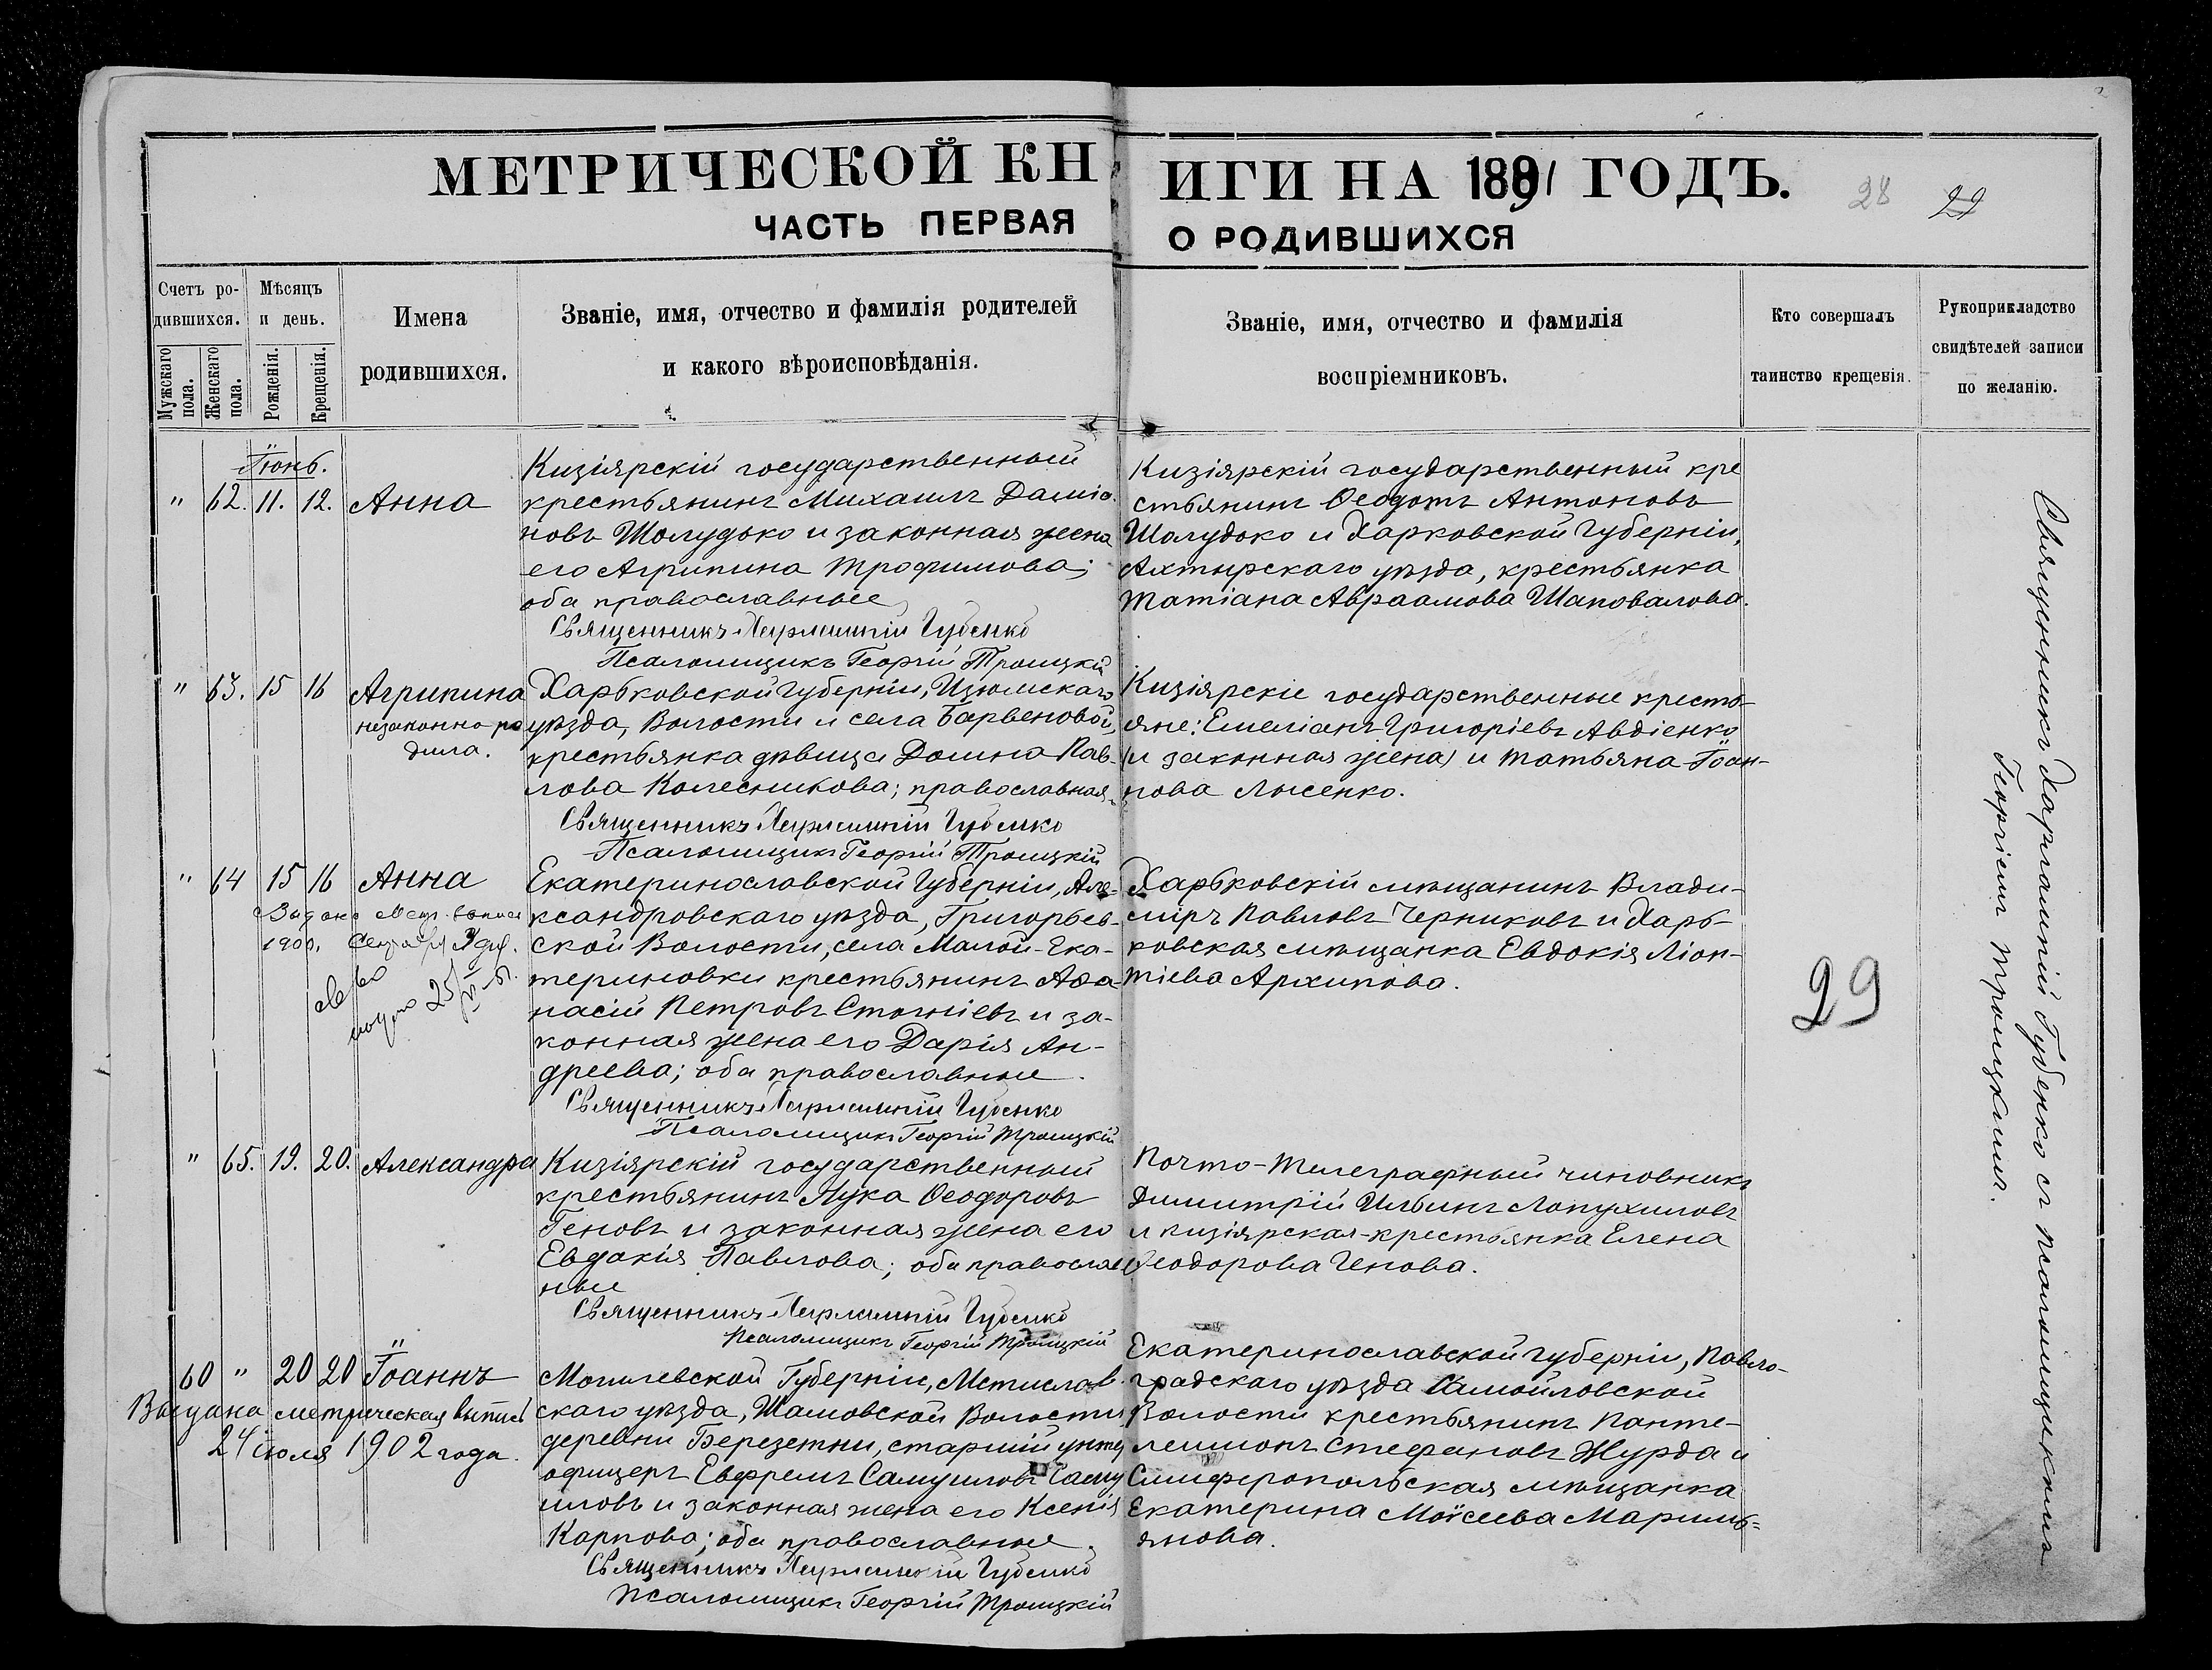 МЕТРИЧЕСКОЙ КНИГИ НА 1891 ГОДЪ.
28 29
ЧАСТЬ ПЕРВАЯ О РОДИВШИХСЯ
Счетъ родившихся.
Мужскаго пола.
Женскаго пола.
Мѣсяцъ и день.
Рожденія.
Крещенія.
Имена
родившихся.
Званіе, имя, отчество и фамилія родителей
и какого вѣроисповѣданія.
Званіе, имя, отчество и фамилія
воспріемниковъ.
Кто совершалъ
таинство крещенія.
Рукоприкладство
свидѣтелей записи
по желанію.
Іюнь.
" 62. 11. 12. Анна
Кизіярскій государственный
крестьянинъ Михаилъ Даміа
новъ Шолудько и законная жена
его Агрипина Трофимова;
оба православные
Священникъ Харлампій Губенко
Псаломщикъ Георгій Троицкій
Кизіярскій государственный кре
стьянинъ Ѳеодотъ Антоновъ
Шолудько и Харковской Губерніи,
Ахтырскаго уѣзда, крестьянка
Татіана Авраамова Шаповалова.
" 63. 15 16 Агрипина
незаконно ро
дила.
Харьковской Губерніи, Изюмскаго
уѣзда, Волости и села Барвеновой,
крестьянка дѣвица Домна Пав-
лова Колесникова; православная.
Священникъ Харлампій Губенко
Псаломщикъ Георгій Троицкій
Кизіярскіе государственные кресть-
яне: Емеліанъ Григоріевъ Авдіенко
(и законная жена) и Татьяна Іоан-
нова Лысенко.
" 64 15 16 Анна
1900.
25
Екатеринославской Губерніи, Але-
ксандровскаго уѣзда, Григорьев-
ской Волости, села Малой-Ека-
териновки крестьянинъ Аѳа-
насій Петровъ Стогніевъ и за-
конная жена его Дарія Ан-
дреева; оба православные.
Священникъ Харлампій Губенко
Псаломщикъ Георгій Троицкій
Харьковскій мѣщанинъ Влади-
міръ Павловъ Черниковъ и Харь-
ковская мѣщанка Евдокія Ліон-
тіева Архипова.
29
" 65. 19. 20. Александра
Кизіярскій государственный
крестьянинъ Лука Ѳеодоровъ
Геновъ и законная жена его
Евдокія Павлова; оба православ
ные
Священникъ Харлампій Губенко
Псаломщикъ Георгій Троицкій
Почто-Телеграфный чиновникъ
Димитрій Ильинъ Лопухиловъ
и кизіярская-крестьянка Елена
Ѳеодорова Генова.
60 " 20 20 Іоаннъ
Выдана метрическая выпись
24 іюля 1902 года.
Могилевской Губерніи, Мстислав.
скаго уѣзда, Шамовской Волости
деревни Березетни, старшій унтер
офицеръ Ефремъ Самуиловъ Саму
иловъ и законная жена его Ксенія
Карпова; оба православные.
Священникъ Харлампій Губенко
Псаломщикъ Георгій Троицкій
Екатеринославской Губерніи, Павло-
градскаго уѣзда Самойловской
Волости крестьянинъ Панте-
леимонъ Стефановъ Журда и
Симферопольская мѣщанка
Екатерина Моїсеева Мариль-
янова.
Священникъ Харлампій Губенко съ псаломщикомъ
Георгіемъ Троицкимъ.